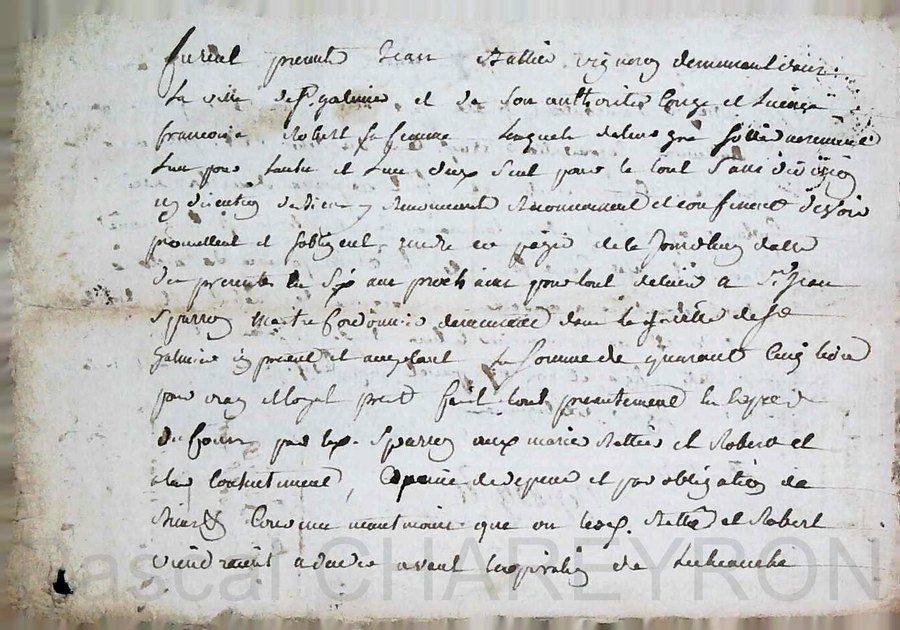 furent presents Jean Rattier vigneron demeurant dans
la ville de St galmier et de son authorité Conge et Licence
francoise Robert sa femme lesquels de leur gré sollidairement
l'un pour lautre et l'un deux seul pour le tout sans division
ny discution de biens y Renoncent Reconnoissent et confessent devoir
promettent et sobligent rendre et payer de la jourdhuy datte
des presentes en six ans prochains pour tout delais a Sr Jean
Sparron maitre Cordonnier demeurant dans la ville de St
galmier cy present et acceptant la somme de quarante Cinq livres
pour vray et loyal prest fait tout presentement en Especes
du Cours par led. Sparron aux mariés Rattier et Robert et
a leur Contentement, a peine de depens et par obligation de
biens Convenu neantmoins que ou lesd. Rattier et Robert
viendroient a deceder avant lexpiration de
Pascal CHAREYRON